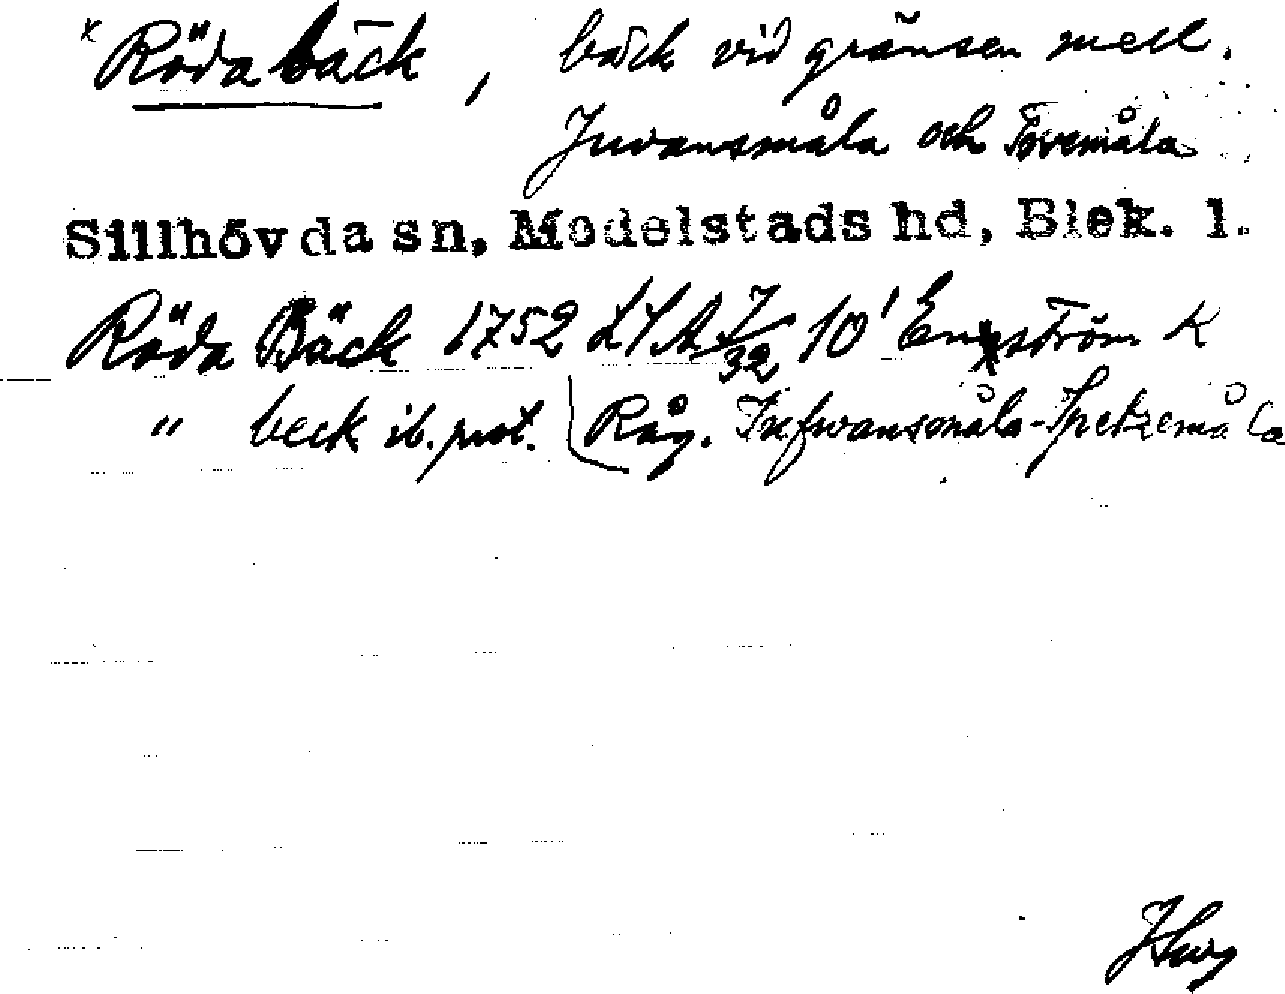 x Röda bäck, bäck vid gränsen mell.
Juvansmåla och
Sillhövda sn, Medelstads hd, Blek. l.
Röda Bäck 1752 LSA J/32 10¹ Enström K
" beck ib. prot. Råg. Jufwansmåla-